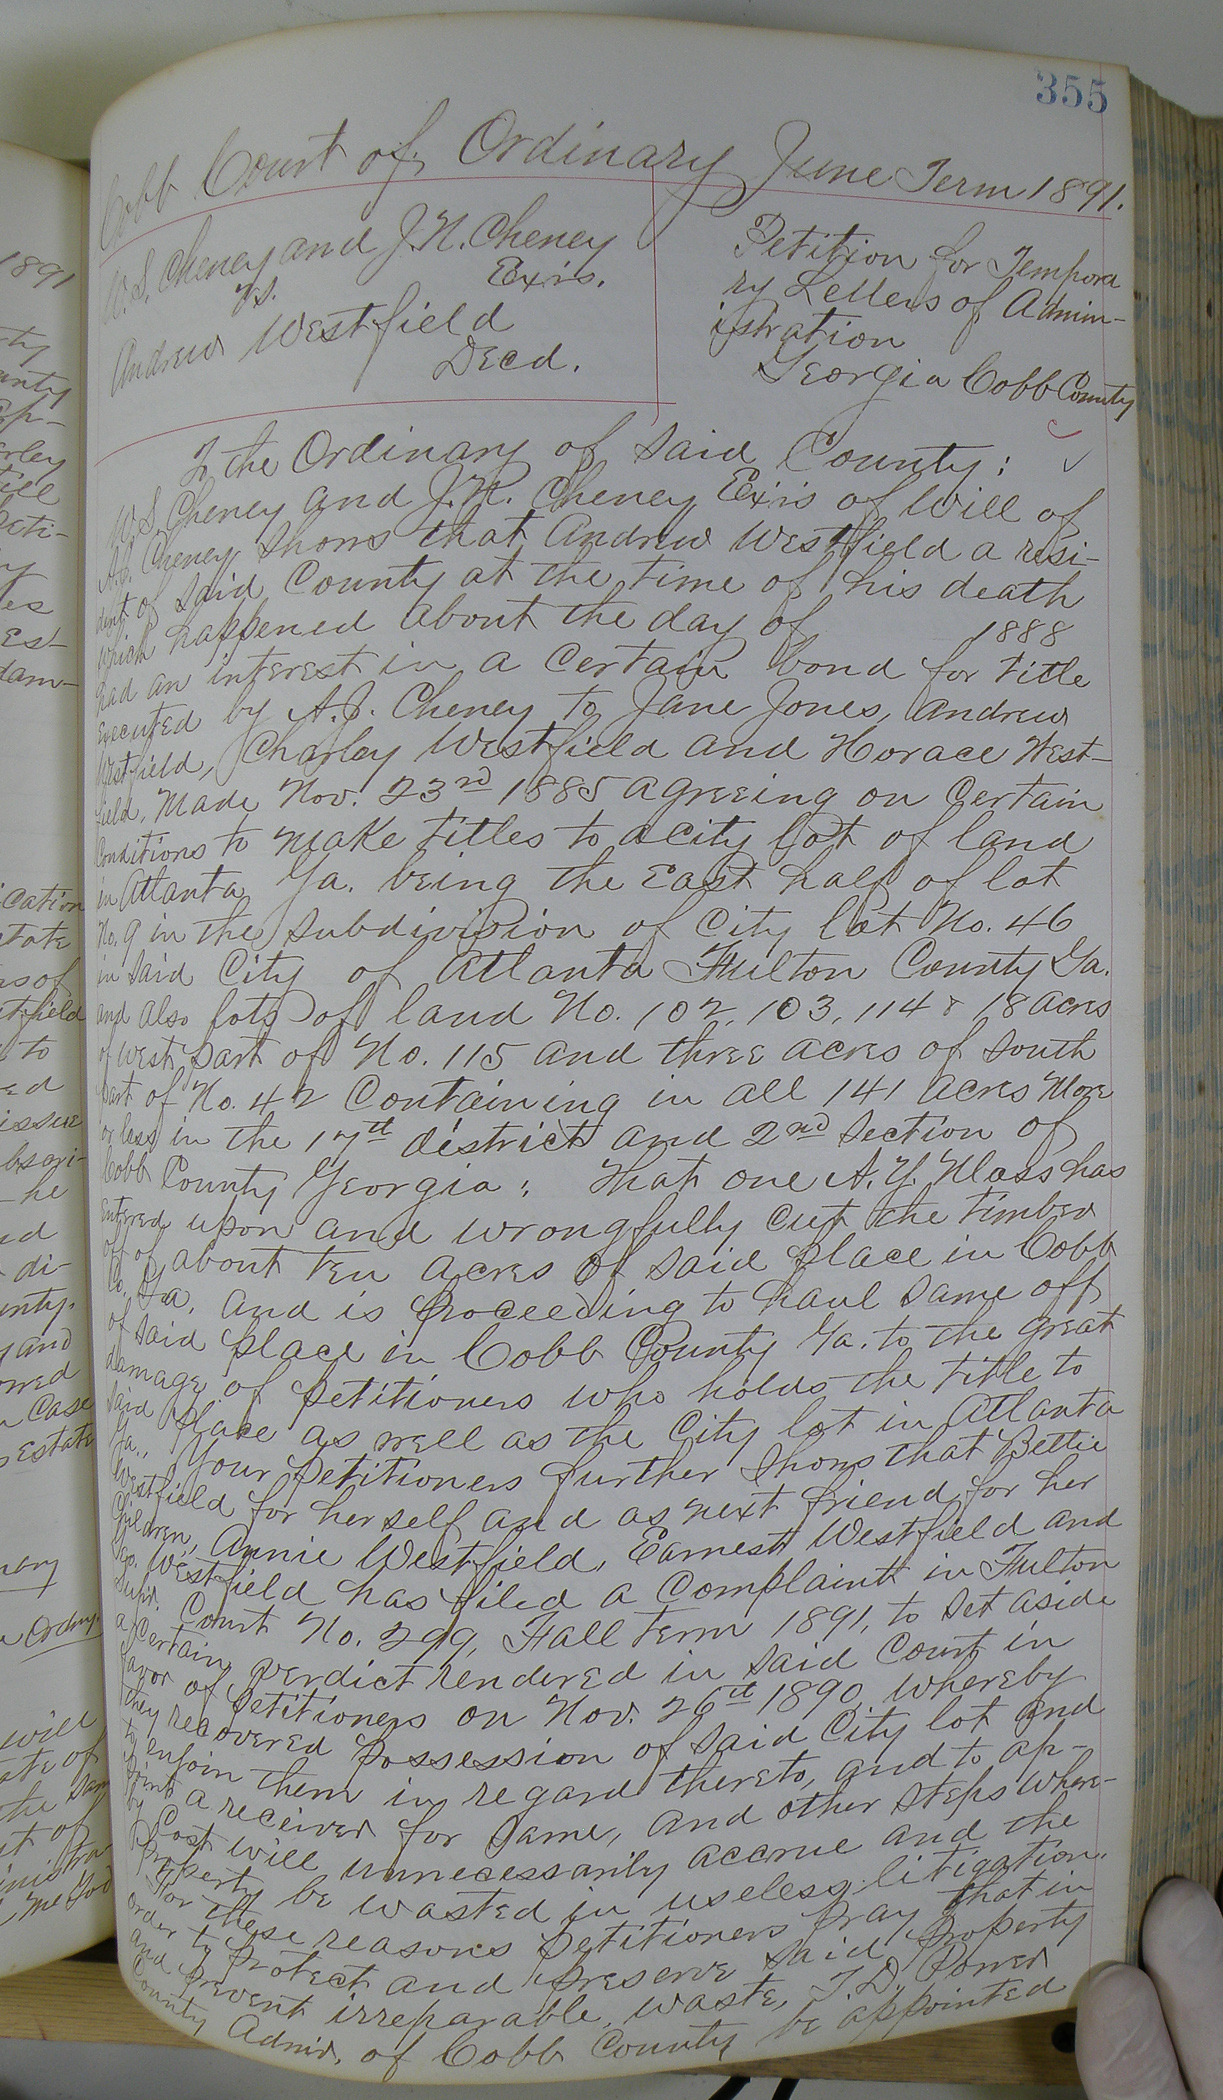 355
Cobb Court of Ordinary June Term 1891.
W.S. Cheney and J.N. Cheney
Exrs.
vs.
Andrew Westfield
Decd.
Petition for Tempora
ry Letters of Admin-
istration
Georgia Cobb County
To the Ordinary of said County:
W.S. Cheney and J.N. Cheney Exrs of Will of
A.J. Cheney, Shows that Andrew Westfield a resi-
dent of said County at the time of his death
which happened about the day of 1888
had an interest in a certain bond for title
executed by A.J. Cheney to Jane Jones, Andrew
Westfield, Charley Westfield and Horace West-
field, Made Nov. 23rd 1885 agreeing on certain
Conditions to make titles to a city lot of land
in Atlanta, Ga. being the East half of lot
No. 9 in the subdivision of City lot No. 46
in said City of Atlanta Fulton County Ga.
and also lots of land No. 102, 103, 114 & 18 acres
of West part of No. 115 and three acres of South
part of No. 42 Containing in all 141 acres More
or less in the 17th district and 2nd Section of
Cobb County Georgia; That one A.Y. has
Entered upon and wrongfully cut the timber
off of about ten acres of said place in Cobb
Co, Ga. and is proceeding to haul same off
of said place in Cobb County Ga. to the great
damage of petitioners who holds the title to
said place as well as the City lot in Atlanta
Ga., Your petitioners further shows that Bettie
Westfield for herself and as next friend for her
Children, Annie Westfield, Earnest Westfield and
Geo. Westfield has filed a Complaint in Fulton
Supr. Court No. 299, Fall term 1891, to set aside
a certain verdict rendered in said Court in
favor of petitioners on Nov. 26th 1890, whereby
they recovered possession of said City lot and
to enjoin them in regard thereto, and to ap-
point a receiver for same, and other steps where-
by cost will unnecessarily accrue and the
property be wasted in useless litigation.
For these reasons petitioners pray that in
order to protect and preserve said property
and prevent irreparable waste, T.D. Power
County Admr. of Cobb County be appointed